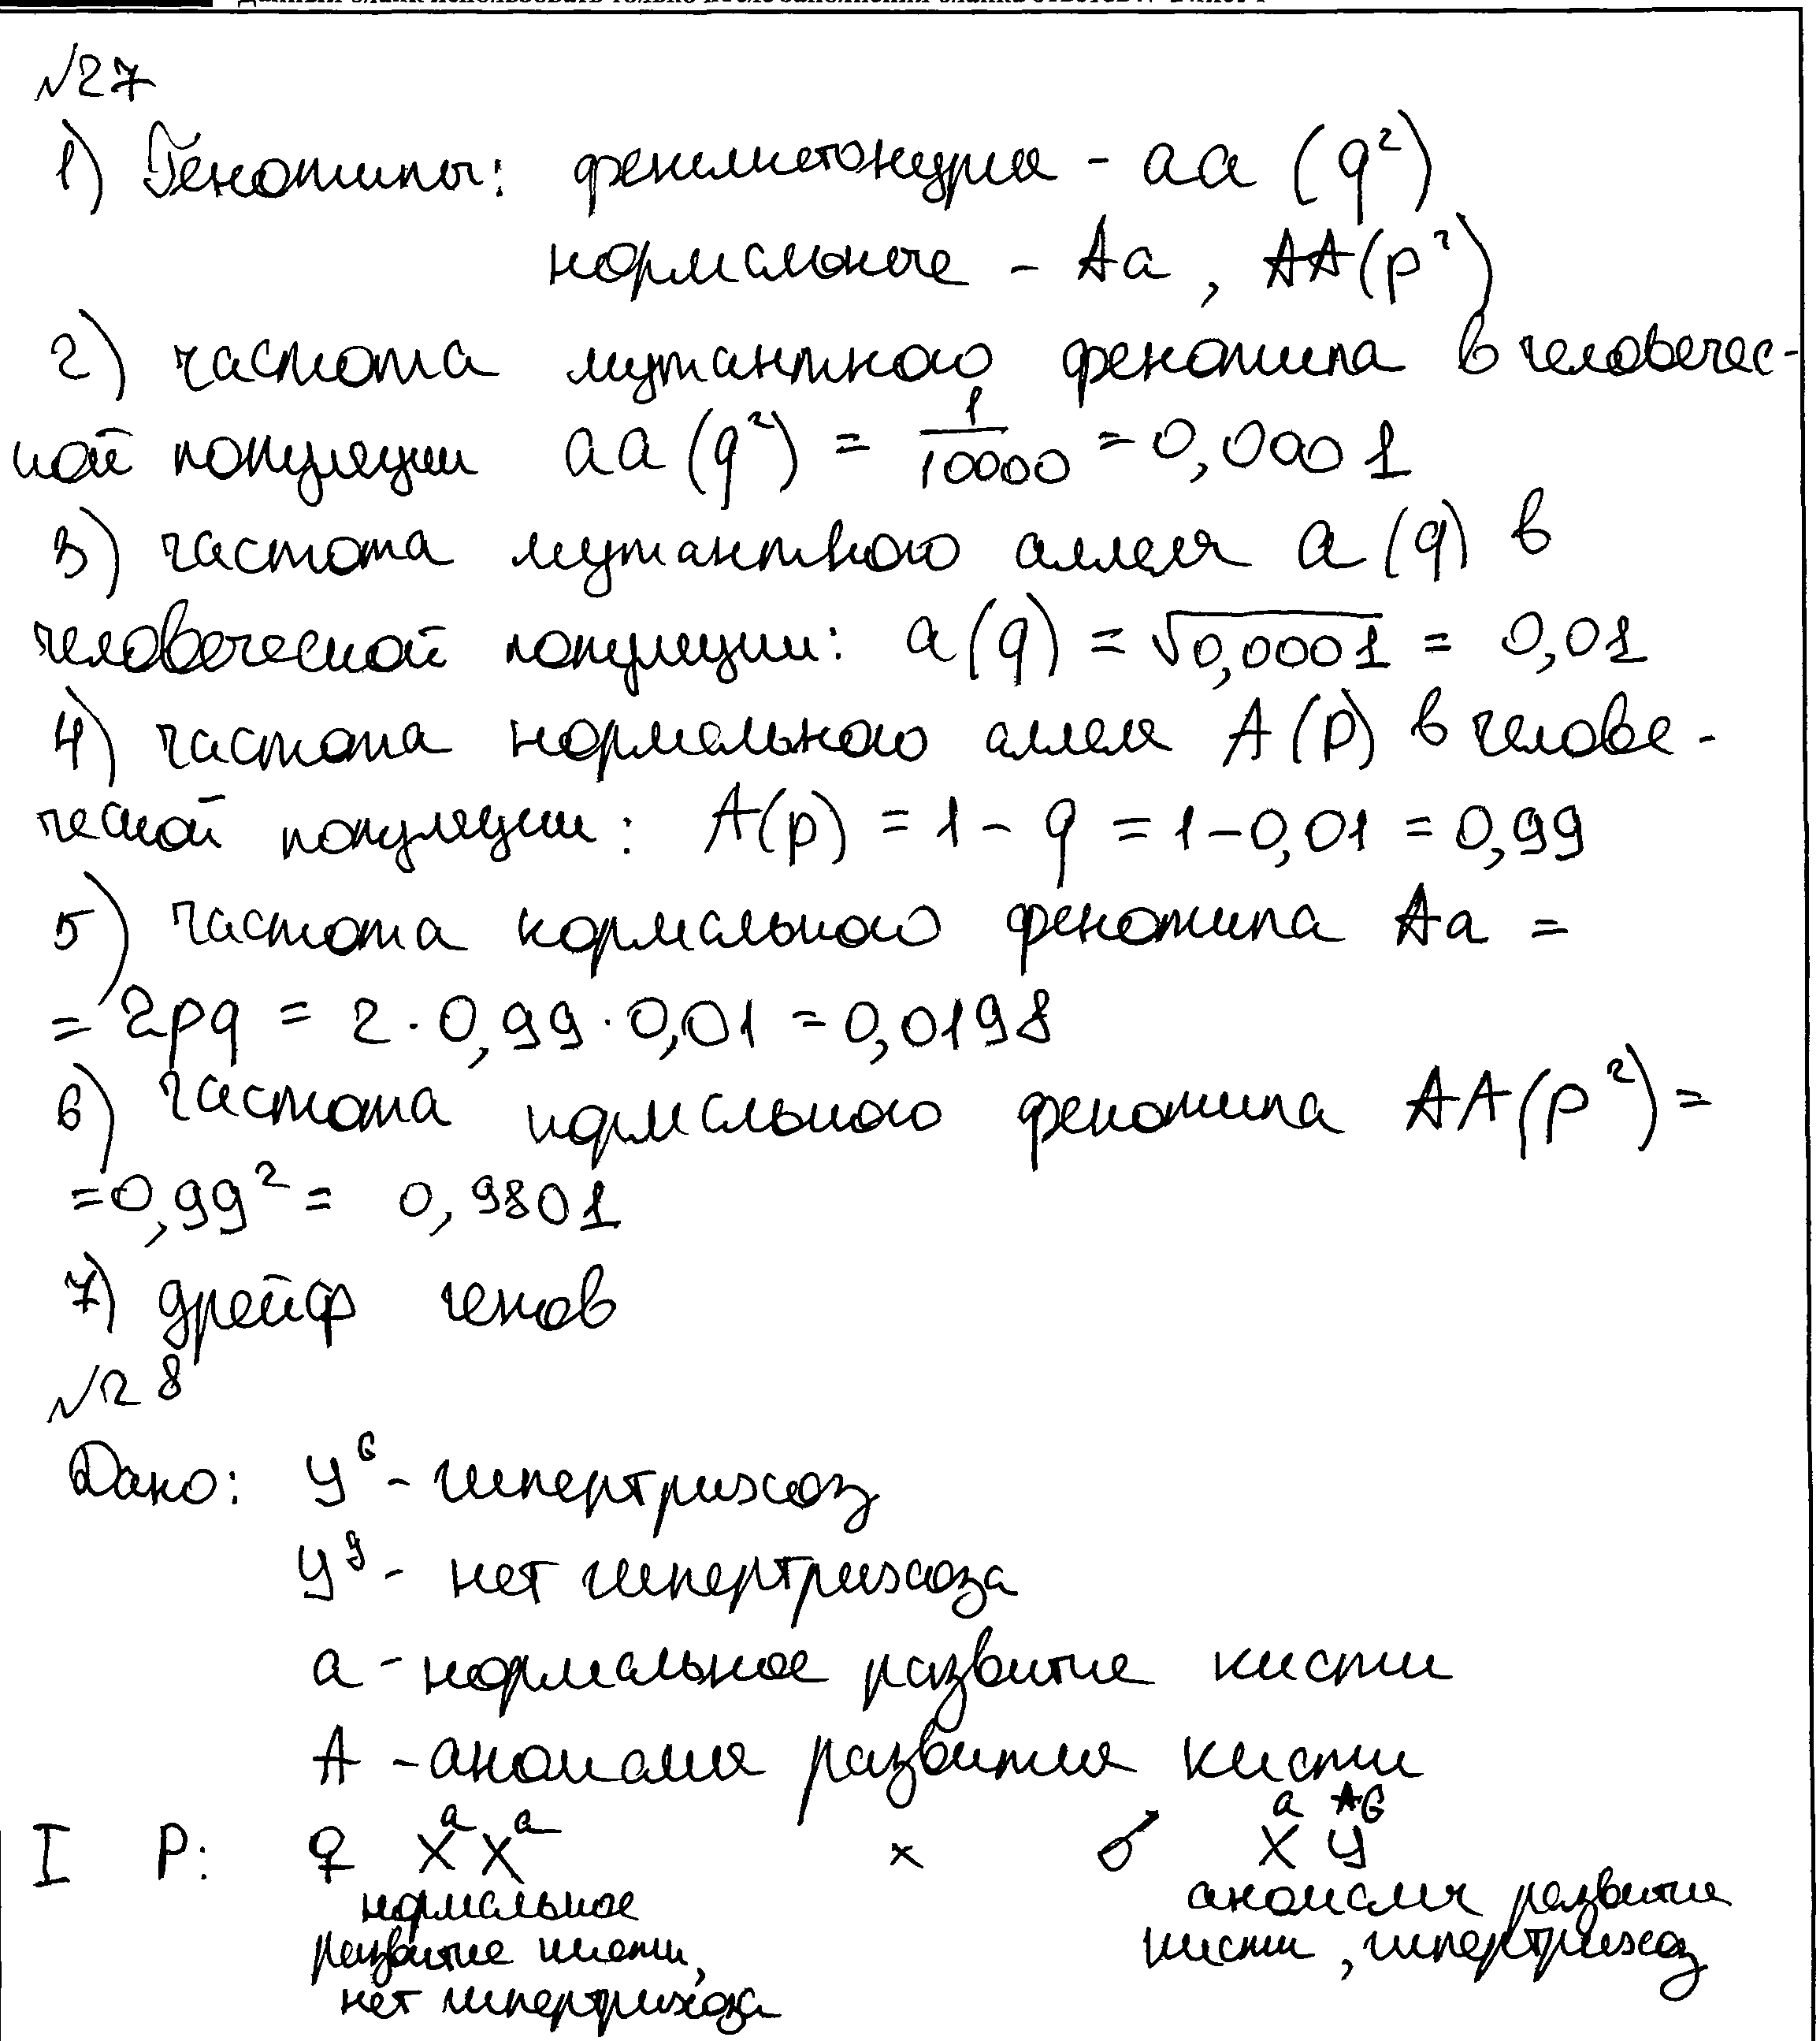 №27
1) Генотипы: фенилкетонурия - aa (q²)
нормальные - Aa, AA(p²)
2) частота мутантного фенотипа в человечес-
кой популяции aa(q²) = 1/10000 = 0,0001
3) частота мутантного аллеля a(q) в
человеческой популяции: a(q) = √0,0001 = 0,01
4) частота нормального аллеля A(p) в челове-
ческой популяции: A(p) = 1 - q = 1 - 0,01 = 0,99
5) частота нормального фенотипа Aa =
= 2pq = 2 · 0,99 · 0,01 = 0,0198
6) частота нормального фенотипа AA(p²) =
= 0,99² = 0,9801
7) дрейф генов
№28
Дано: Y^G - гипертрихоз
Y^g - нет гипертрихоза
a - нормальное развитие кисти
A - аномалия развития кисти
I P: ♀ X^a X^a × ♂ X^a Y^AG
нормальное аномалия развитие
развитие кисти, кисти, гипертрихоз
нет гипертрихоза